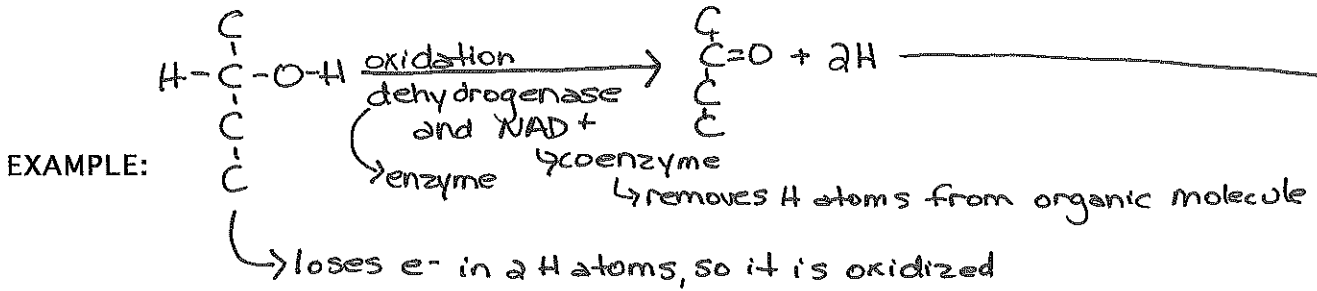 C
H-C-O-H oxidation C=O + 2H
C dehydrogenase C
C and NAD+ C
EXAMPLE: C enzyme coenzyme
removes H atoms from organic molecule
loses e- in 2 H atoms, so it is oxidized